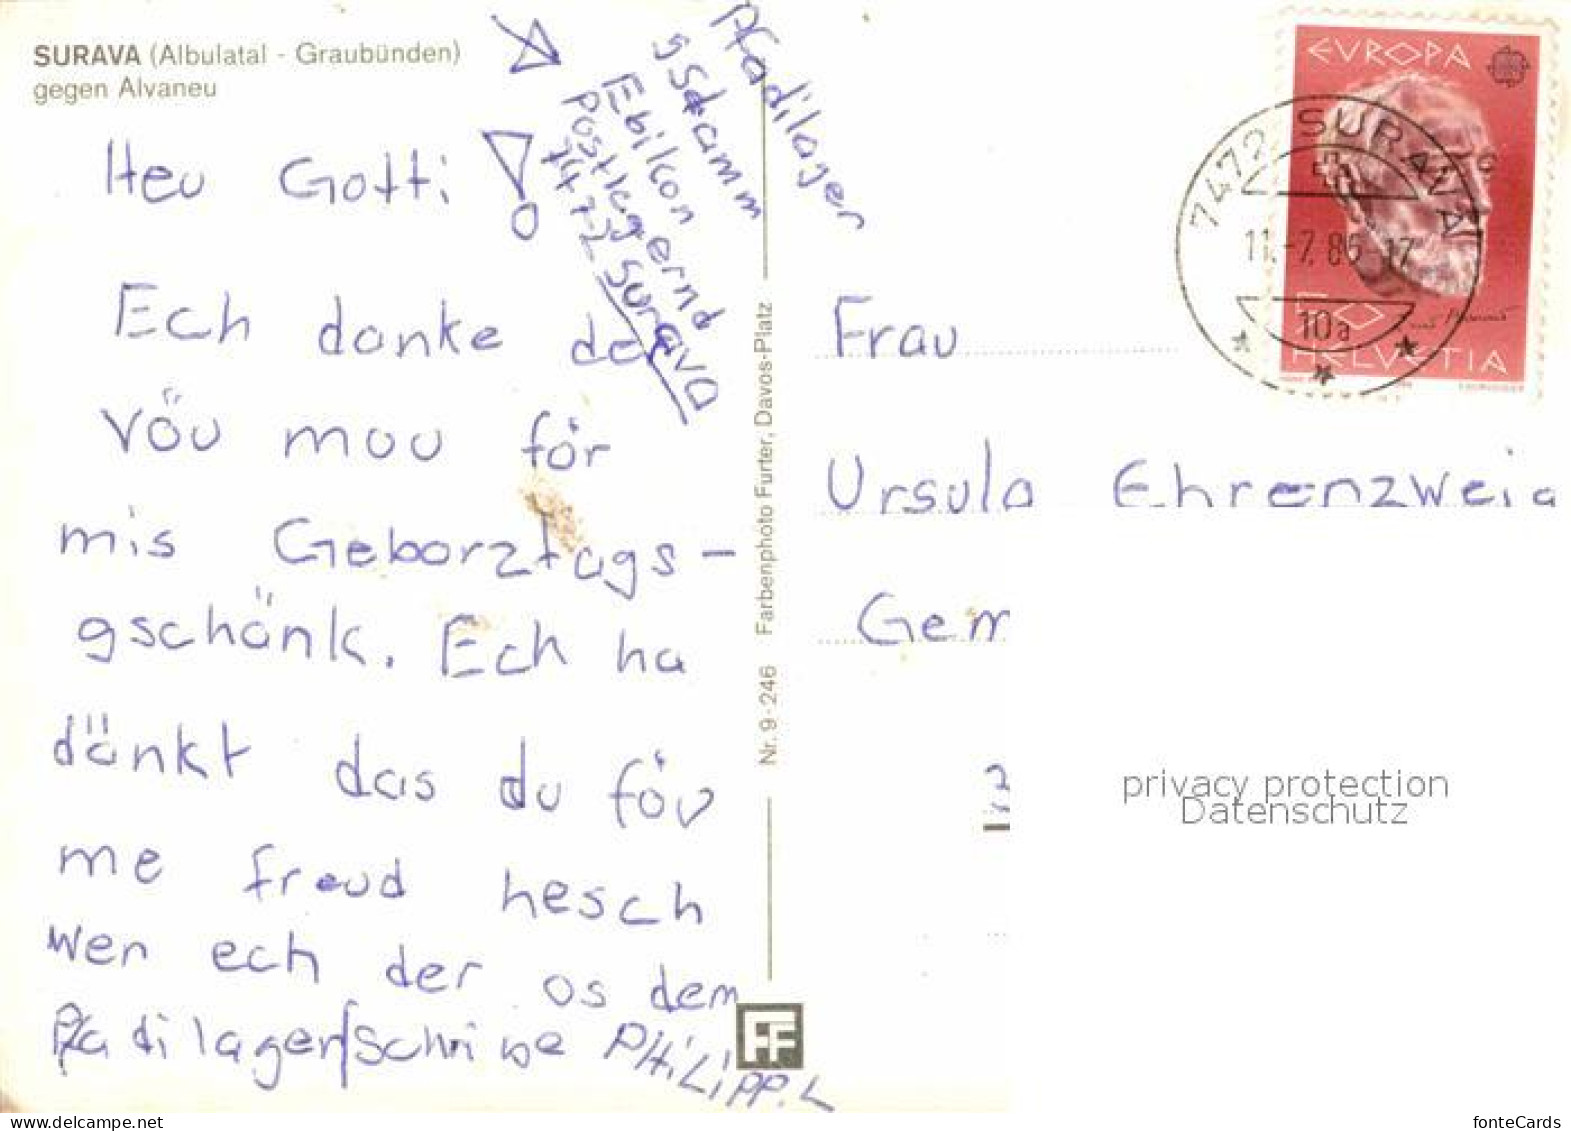 SURAVA (Albulatal - Graubünden)
gegen Alvaneu
Heu Gotti
Ech danke der
vöu mou för
mis Geborztags-
gschänk. Ech ha
dänkt das du föu
me freud hesch
wen ech der os dem
Pfadilager schribe PHiLiPP. L
Pfadilager
gStamm
Ebikon
Postlagernd
7472 Surava
Nr. 9-246 Farbenphoto Furter, Davos-Platz
FF
EVROPA
50
HELVETIA
7472 SURAVA
11.-7.86-17
10a
Frau
Ursula Ehrenzweig
Gem
privacy protection
Datenschutz
delcampe.net
fonteCards